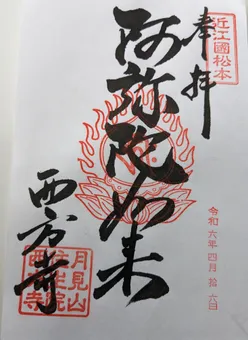 近江國松本
奉拝
阿弥陀如来
令和六年四月拾六日
西方寺
月見山
往生院
西方寺